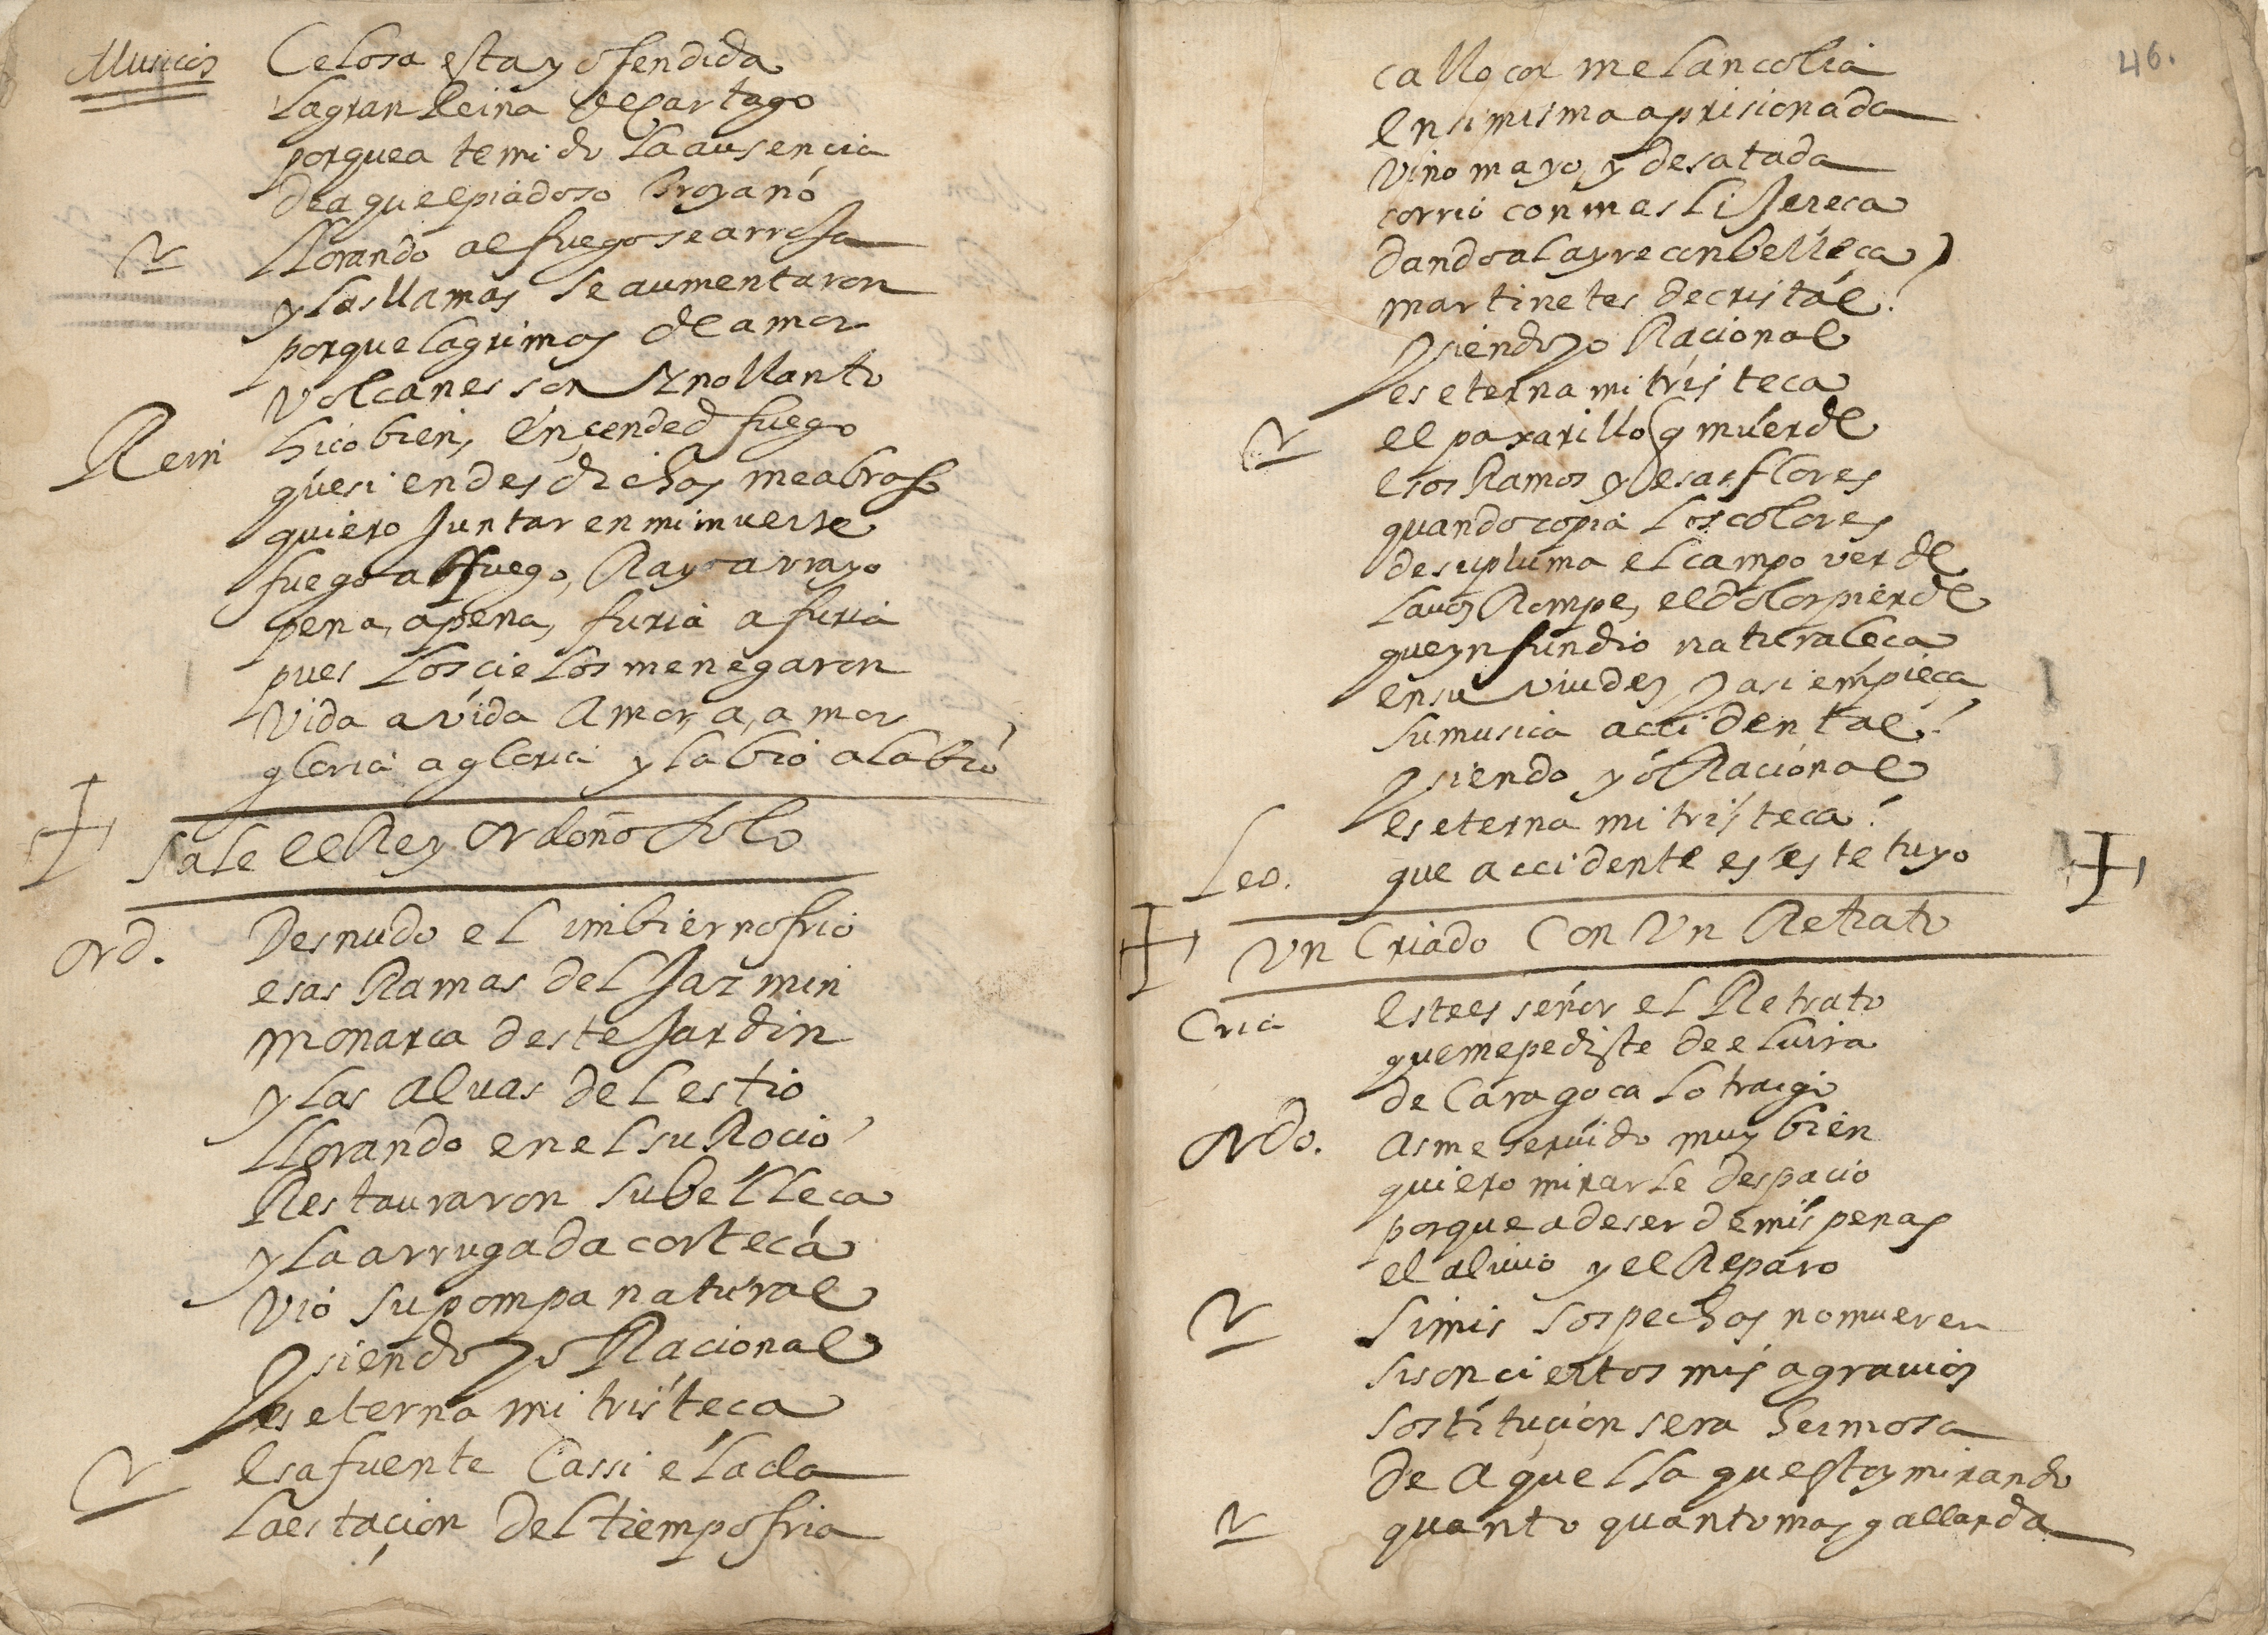 Musicos Celosa esta y ofendida
la gran Reina de Cartago
porque a temido la ausencia
de aquel piadoso troyano
llorando al fuego se arroja
y las llamas se aumentaron
porque lagrimas de amor
volcanes son y no llanto
Rein hiço bien, ençended fuego
que si en desdichas me abraso
quiero juntar en mi muerte
fuego a fuego, Rayo a rrayo
pena, a pena, furia a furia
pues los cielos me negaron
Vida a vida Amor, a, amor
gloria a gloria y labio a labio
Sale el Rey ordoño solo
ord. Desnudo el imbierno frio
esas Ramas del Jazmin
monarca deste Jardin
y las alvas del estio
llorando en el su Rocio
Restauraron su belleça
y la arrugada corteça
vio su pompa natural
y siendo yo Racional
es eterna mi tristeça
esa fuente cassi elada
la estaçion del tiempo fria
46.
callo con melancolia
en si misma aprisionada
vino mayo, y desatada
corrio con mas lijereça
dando al ayre con belleça
martinetes de cristal
y siendo yo Racional
es eterna mi tristeça
el paxarillo q muerde
esos Ramos y esas flores
quando copia los colores
de su pluma el campo verde
la voz Rompe, el dolor pierde
que ynfundio naturaleça
en su viudez y asi empieça
su musica accidental
y siendo yo Racional
es eterna mi tristeça
Leo. que accidente es este tuyo
Un Criado Con Un Retrato
Cria este es señor el Retrato
que me pediste de elvira
de Caragoça lo traigo
ordo. as me seruido muy bien
quiero mirarle despacio
porque a de ser de mis penas
el aliuio y el Reparo
si mis sospechas no mueren
si son ciertos mis agrauios
sostituçion sera hermosa
de aquella que estoy mirando
quanto quanto mas gallarda